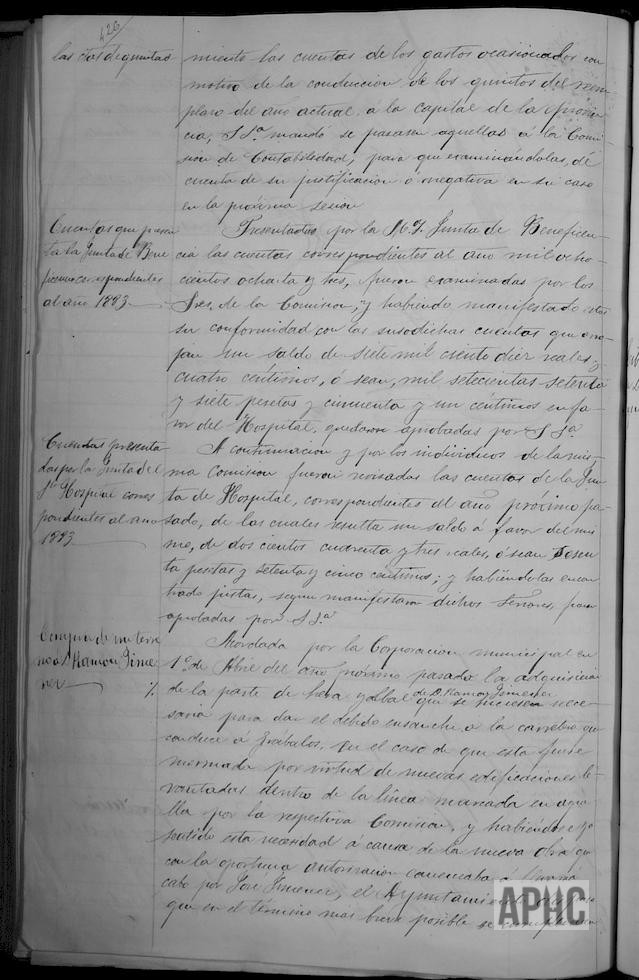 426
las ctas de quintas
miento las cuentas de los gastos ocasionados con
motivo de la conduccion de los quintos del reem-
plazo del año actual, á la capital de la provin-
cia, S Sª mandó se pasaran aquellas á la Comi-
sion de Contabilidad, para que examinándolas, dé
cuenta de su justificacion ó negativa en su caso
en la próxima sesion
Cuentas que presen
ta la Junta de Bene
ficencia correspondientes
al año 1883
Presentadas por la M. Y. Junta de Beneficen-
cia las cuentas correspondientes al año mil ocho-
cientos ochenta y tres, fueron examinadas por los
Sres. de la Comision, y habiendo manifestado estos
su conformidad con las susodichas cuentas que arro-
jan un saldo de siete mil ciento diez reales y
cuatro céntimos, ó sean, mil setecientas setenta
y siete pesetas y cincuenta y un céntimos en fa-
vor del Hospital, quedaron aprobadas por S Sª
Cuentas presenta
das por la Junta del
Sto Hospital corres
pondientes al año
1883
A continuacion y por los individuos de la mis-
ma Comision fueron revisadas las cuentas de la Jun-
ta de Hospital, correspondientes al año próximo pa-
sado, de las cuales resulta un saldo á favor del mis-
mo, de dos cientos cuarenta y tres reales, ó sean sesen
ta pesetas y setenta y cinco céntimos; y habiéndolas encon
trado justas, segun manifestaron dichos Señores, fueron
aprobadas por S Sª
Compra de un terre
no á D. Ramon Jime
nez
Acordada por la Corporacion municipal en
1º de Abril del año próximo pasado la adquisicion
de D. Ramon Jimenez
de la parte de hera y que se hiciesen nece-
saria para dar el debido ensanche á la carretera que
conduce á Grábalos, en el caso de que esta fuese
mermada por virtud de nuevas edificaciones le-
vantadas dentro de la línea marcada en aque-
lla por la respectiva Comision, y habiéndose ya
sentido esta necesidad á causa de la nueva obra que
con la oportuna autorizacion á
cabo por José Jimenez, el Ayuntamiento
que en el término mas breve posible se
APHC